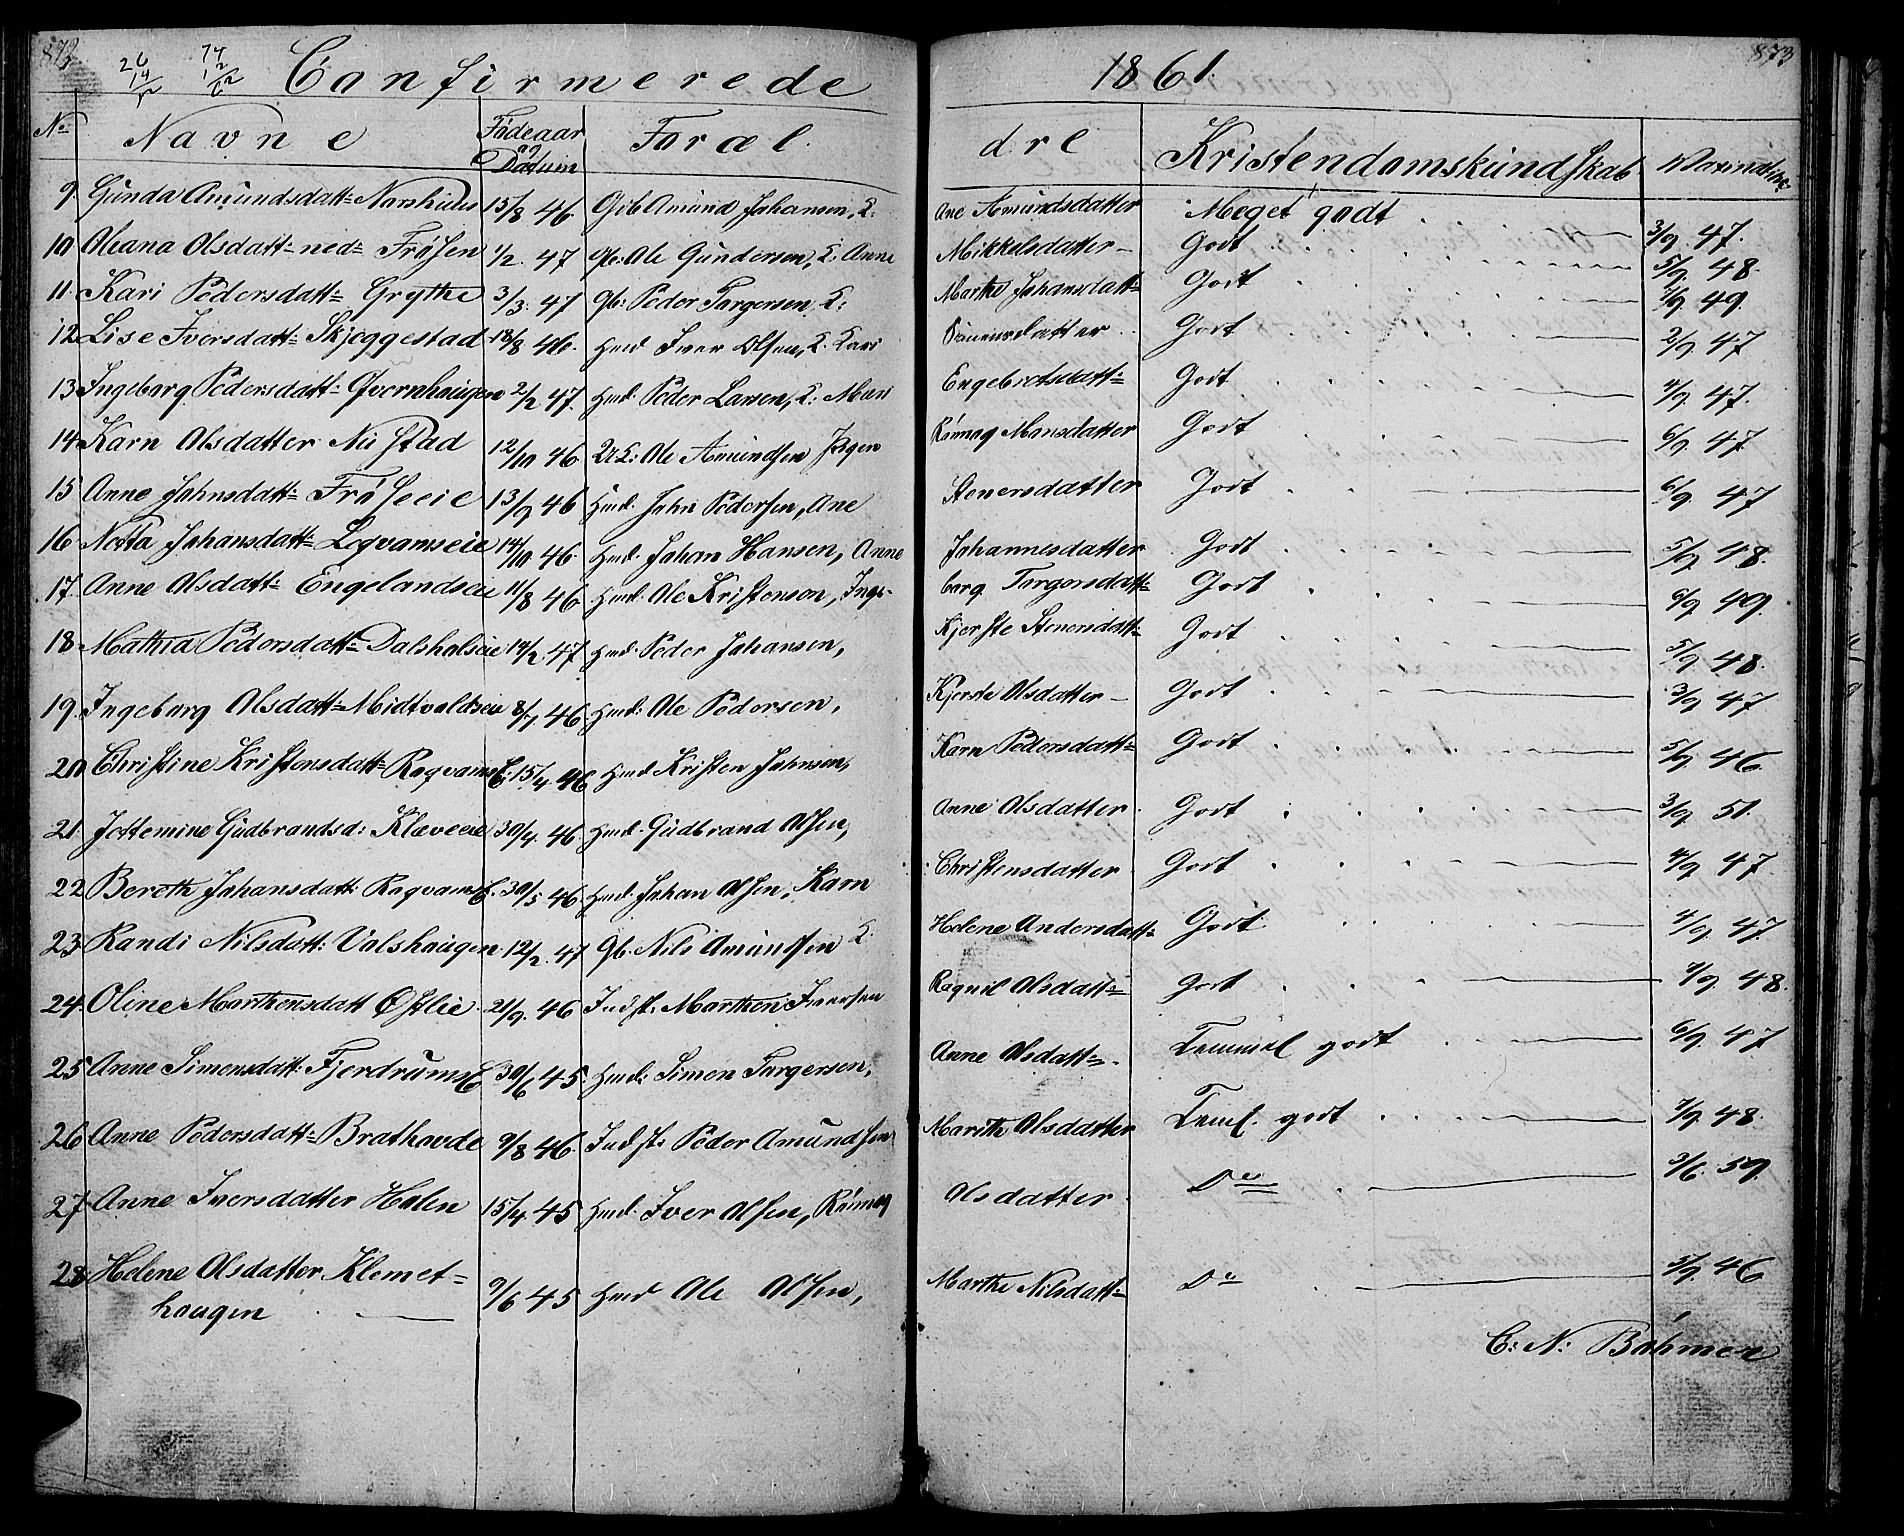 872 873
26 14 12 74 12 62
Confirmerede 1861.
No Navne Fødeaar og Datum Foræl. dre Kristendomskundskab Vaxinattest
9. Gunda Amundsdatt= Narshuus 15/8 46 Gb Amund Johansen, K: Ane Amundsdatter Meget godt 3/9 47.
10 Oleana Olsdatt= ned= Frøsen 1/2. 47 Gb: Ole Gundersen, K: Anne Mikkelsdatter Godt 5/9 48.
11. Kari Pedersdatt= Grythe 3/3. 47 Gb: Peder Torgersen, K: Marthe Johansdatt= Godt /9. 49.
12 Lise Iversdatt= Skjeggestad 18/8 46. Hmd Iver Olsen, K. Kari Simensdatter Godt 2/9 47
13 Ingeborg Pedersdatt= Qvernhaugen 2/2 47. Hmd. Peder Larsen, K: Mari Engebretsdatt= Godt 4/9. 47.
14 Karn Olsdatter Nustad 12/10 46 UK: Ole Amundsen Jevgen Rønnog Monsdatter Godt 6/9. 47.
15 Anne Johnsdatt= Frøseeie 13/9 46 Hmd. John Pedersen, Ane Stenersdatter Godt 6/9 47
16 Netta Johansdatt= Løqvamseie 14/10 46. Hmd. Johan Hansen, Anne Johannesdatter Godt 5/9 48.
17. Anne Olsdatt= Engelandseie 11/8 46 Hmd. Ole Kristenson, Inge- borg Torgersdatt= Godt 6/9 49.
18 Mathea Pedersdatt= Dalsholseie 14/2. 47 Hmd. Peder Johansen, Kjerste Stenersdatt= Godt 5/9 48.
19. Ingeborg Olsdatt= Midtvoldseie 8/7 46 Hmd. Ole Pedersen, Kjerste Olsdatter Godt 3/9 47
20 Christine Kristensdatt= Roqvams E. 15/4 46 Hmd Kristen Johnsen, Karn Pedersdatt= Godt 5/9 46.
21. Jostemine Gudbrandsd: Klæveeie 30/4. 46 Hmd. Gudbrand Olsen, Anne Olsdatter Godt 3/9. 51.
22 Bereth Johansdatt: Roqvams E. 30/5 46 Hmd. Johan Olsen, Karn Christensdatter Godt 4/9 47.
23. Randi Nilsdatt: Valshaugen 12/2. 47 Gb. Nils Amundsen K. Helene Andersdatt= Godt 4/9 47.
24. Oline Marthensdatt Østlie 21/9. 46 Indst: Marthen Iversen Ragnil Olsdatt= Godt 7/9. 48.
25 Arene Simensdatt: Fjerdrums E 30/6 45. Hmd: Simen Torgersen, Anne Olsdatt= Temmel godt 6/9. 47
26 Anne Pedersdatt= Brathovde 9/8 46. Indst: Peder Amundsen Marith Olsdatter Teml. godt 7/9. 48.
27 Anne Iversdatter Holen 15/4. 45 Hmd. Iver Olsen, Rønnog Olsdatter Do 3/6. 59.
28 Helene Olsdatter Klemet=
haugen 9/6 45 Hmd Ole Olsen, Marthe Nilsdatt= Do 5/9. 46
C: N: Bøhmer